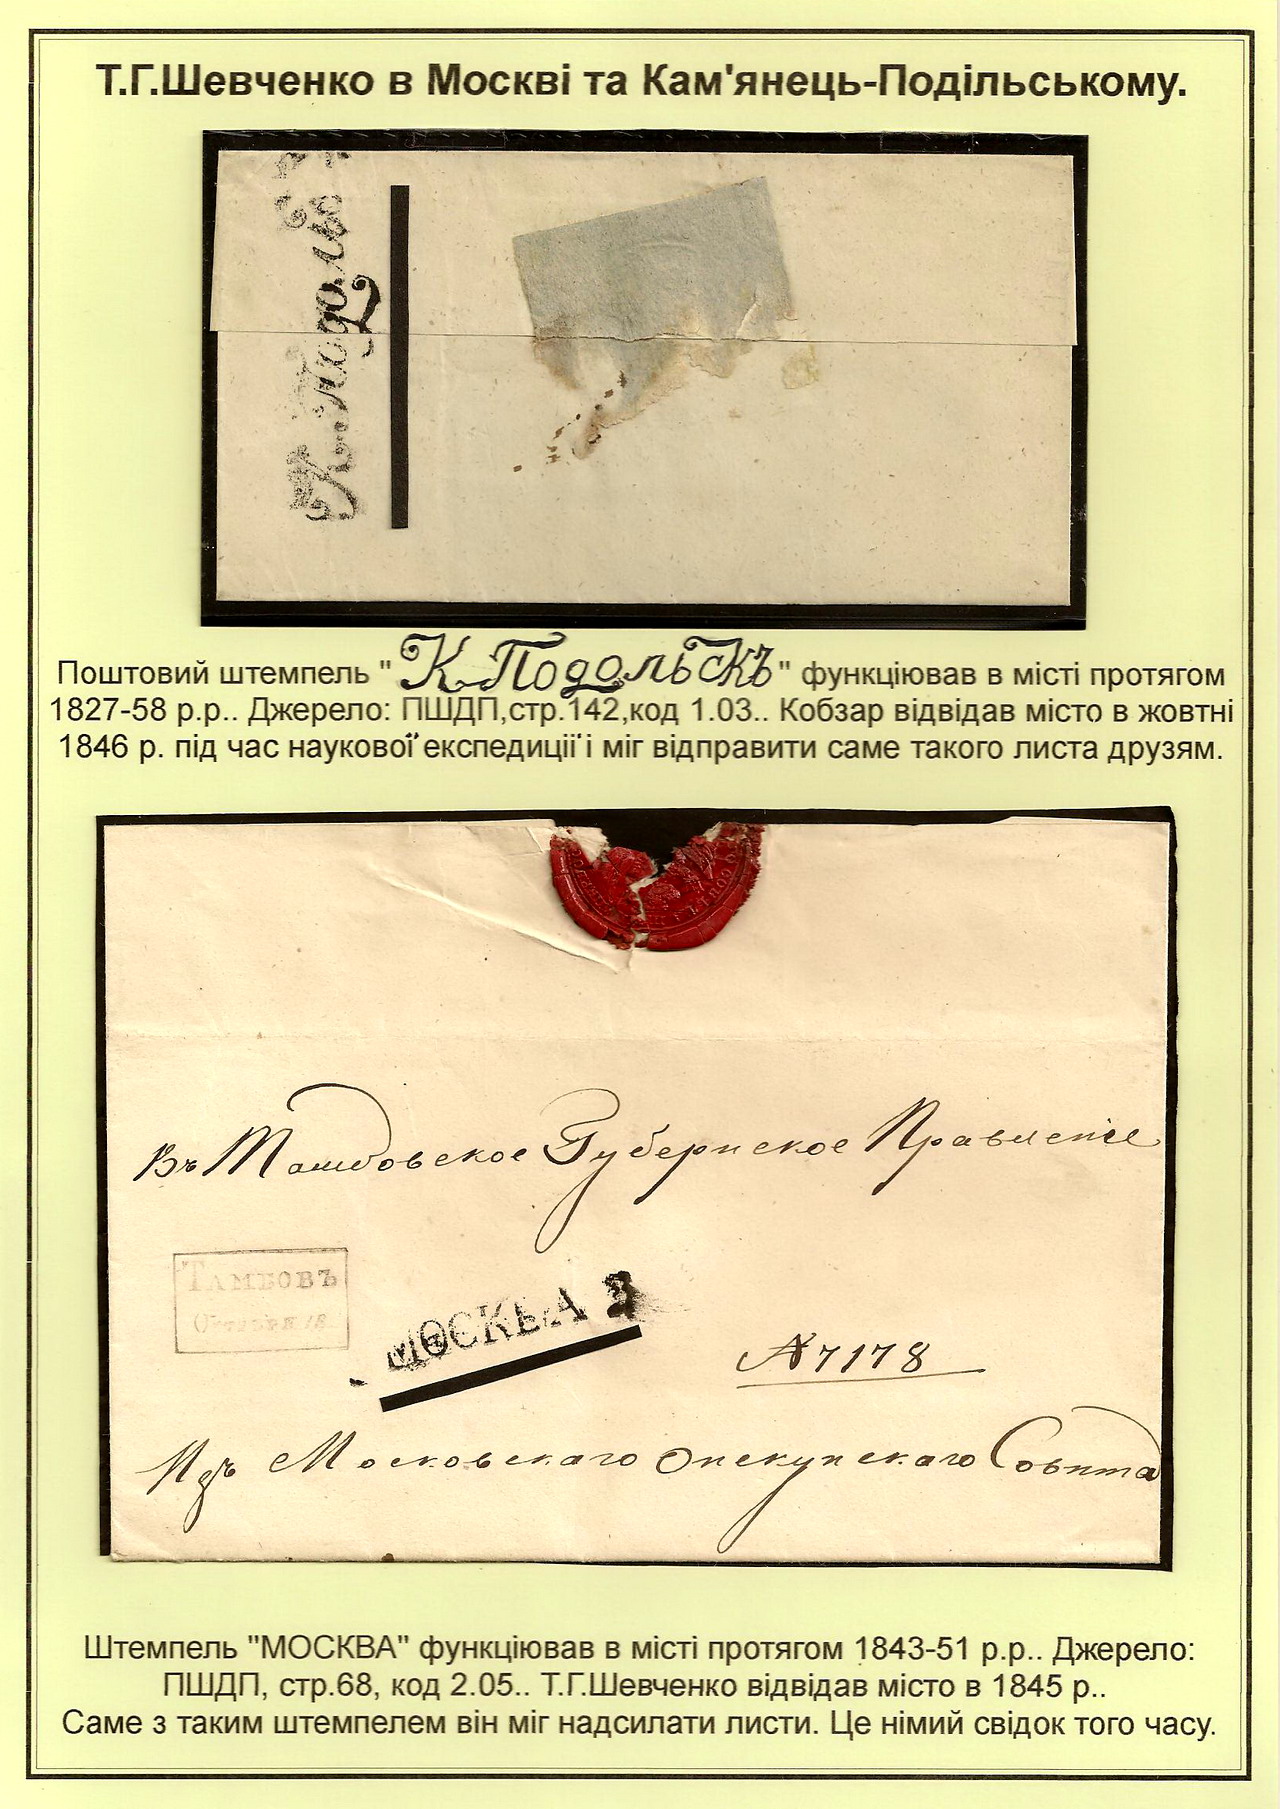 Т.Г.Шевченко в Москві та Кам'янець-Подільському.
К. Подольскъ
Поштовий штемпель "К. Подольскъ" функціював в місті протягом
1827-58 р.р.. Джерело: ПШДП,стр.142,код 1.03.. Кобзар відвідав місто в жовтні
1846 р. під час наукової експедиції і міг відправити саме такого листа друзям.
Въ Тамбовское Губернское Правленіе
Тамбовъ
МОСКВА
№ 7178
Изъ Московскаго Опекунскаго Совѣта
Штемпель "МОСКВА" функціював в місті протягом 1843-51 р.р.. Джерело:
ПШДП, стр.68, код 2.05.. Т.Г.Шевченко відвідав місто в 1845 р..
Саме з таким штемпелем він міг надсилати листи. Це німий свідок того часу.